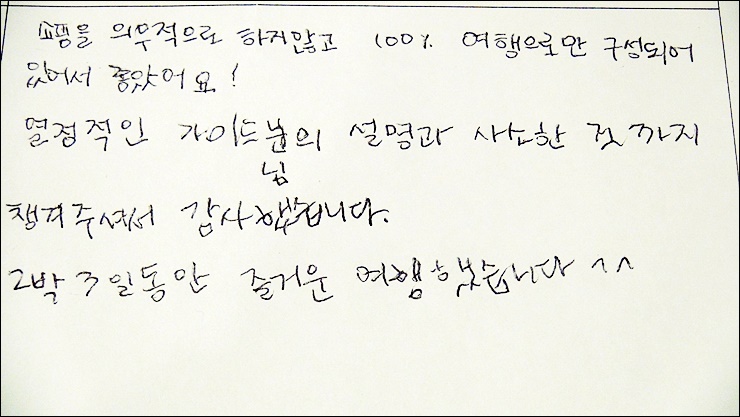 쇼핑을 의무적으로 하지않고 100% 여행으로만 구성되어
있어서 좋았어요!
열정적인 가이드분의 설명과 사소한 것까지
님
챙겨주셔서 감사했습니다.
2박 3일동안 즐거운 여행했습니다 ^^